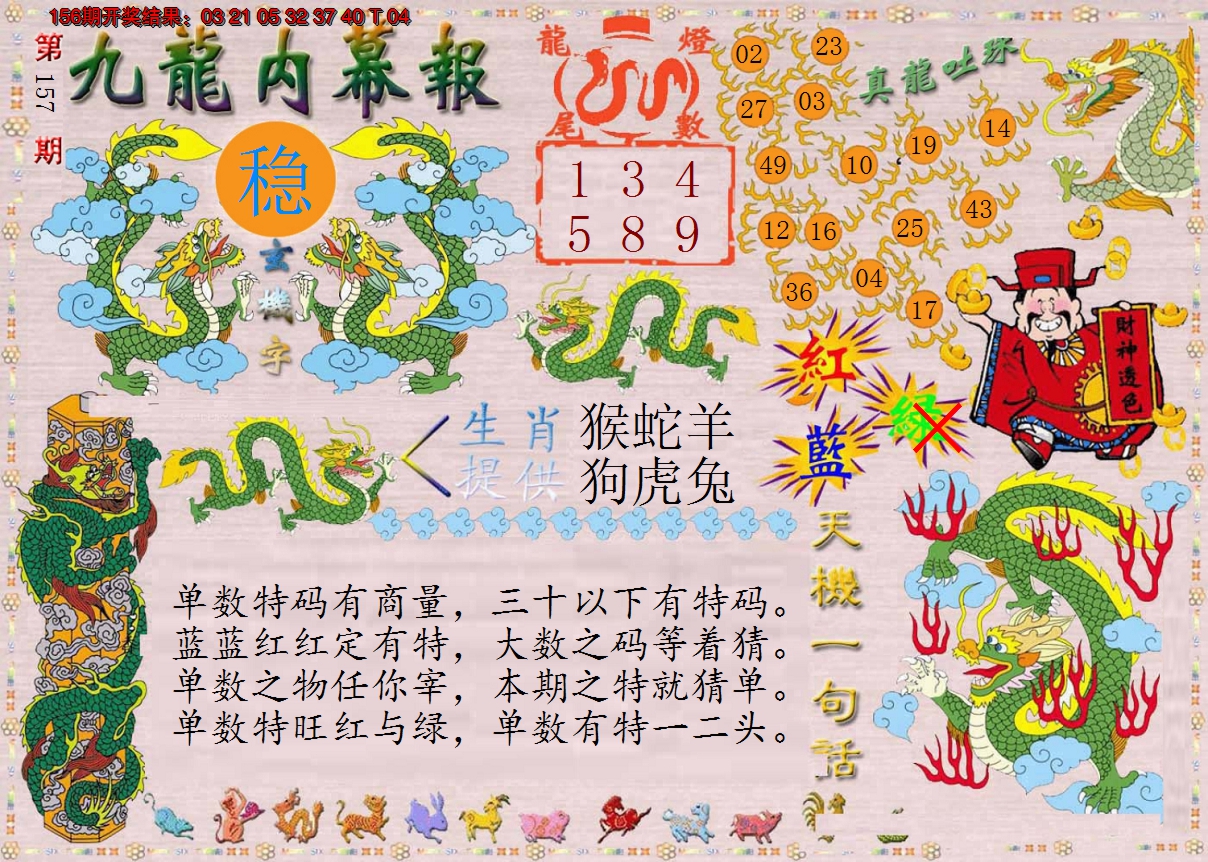 156期开奖结果：03 21 05 32 37 40 T 04
第157期
九龍内幕報
稳
玄機字
龍燈
尾數
1 3 4
5 8 9
真龍吐珠
02 23
27 03
49 10 19 14
12 16 25 43
36 04 17
財神透色
紅
綠
藍
生肖 猴蛇羊
提供 狗虎兔
天機一句话
单数特码有商量，三十以下有特码。
蓝蓝红红定有特，大数之码等着猜。
单数之物任你宰，本期之特就猜单。
单数特旺红与绿，单数有特一二头。